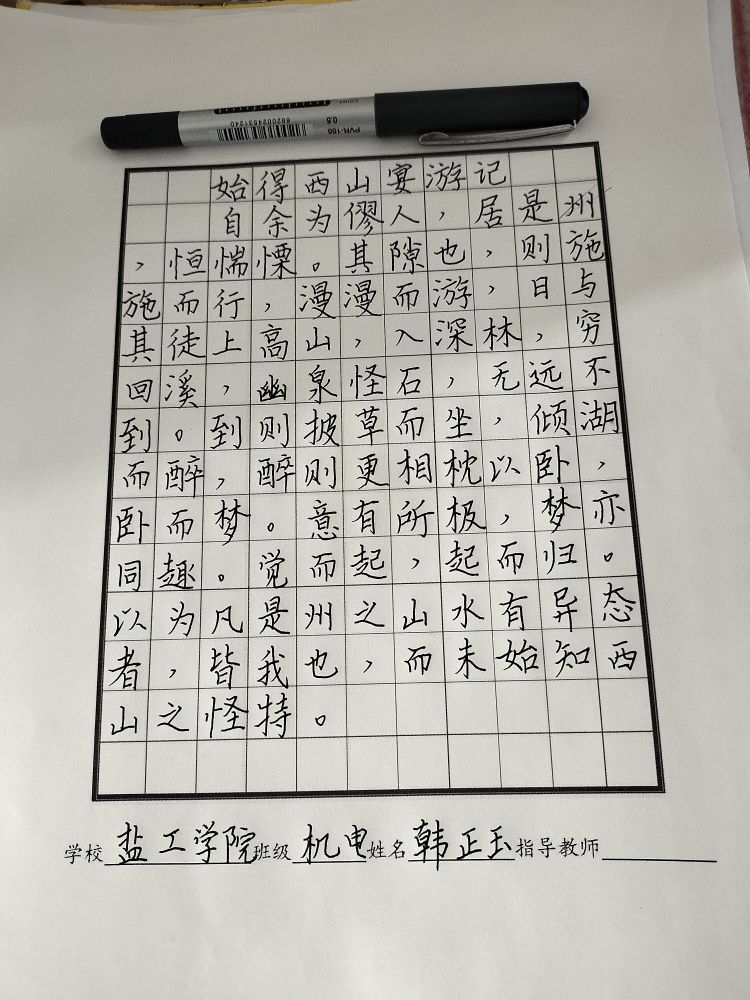 CHINA
0.5
PVR-155
6920024531240
始得西山宴游记
自余为僇人，居是州
，恒惴慄。其隙也，则施
施而行，漫漫而游，日与
其徒上高山，入深林，穷
回溪，幽泉怪石，无远不
到。到则披草而坐，倾湖
而醉，醉则更相枕以卧，
卧而梦。意有所极，梦亦
同趣。觉而起，起而归。
以为凡是州之山水有异态
者，皆我也，而未始知西
山之怪特。
学校 盐工学院 班级 机电 姓名 韩正玉 指导教师